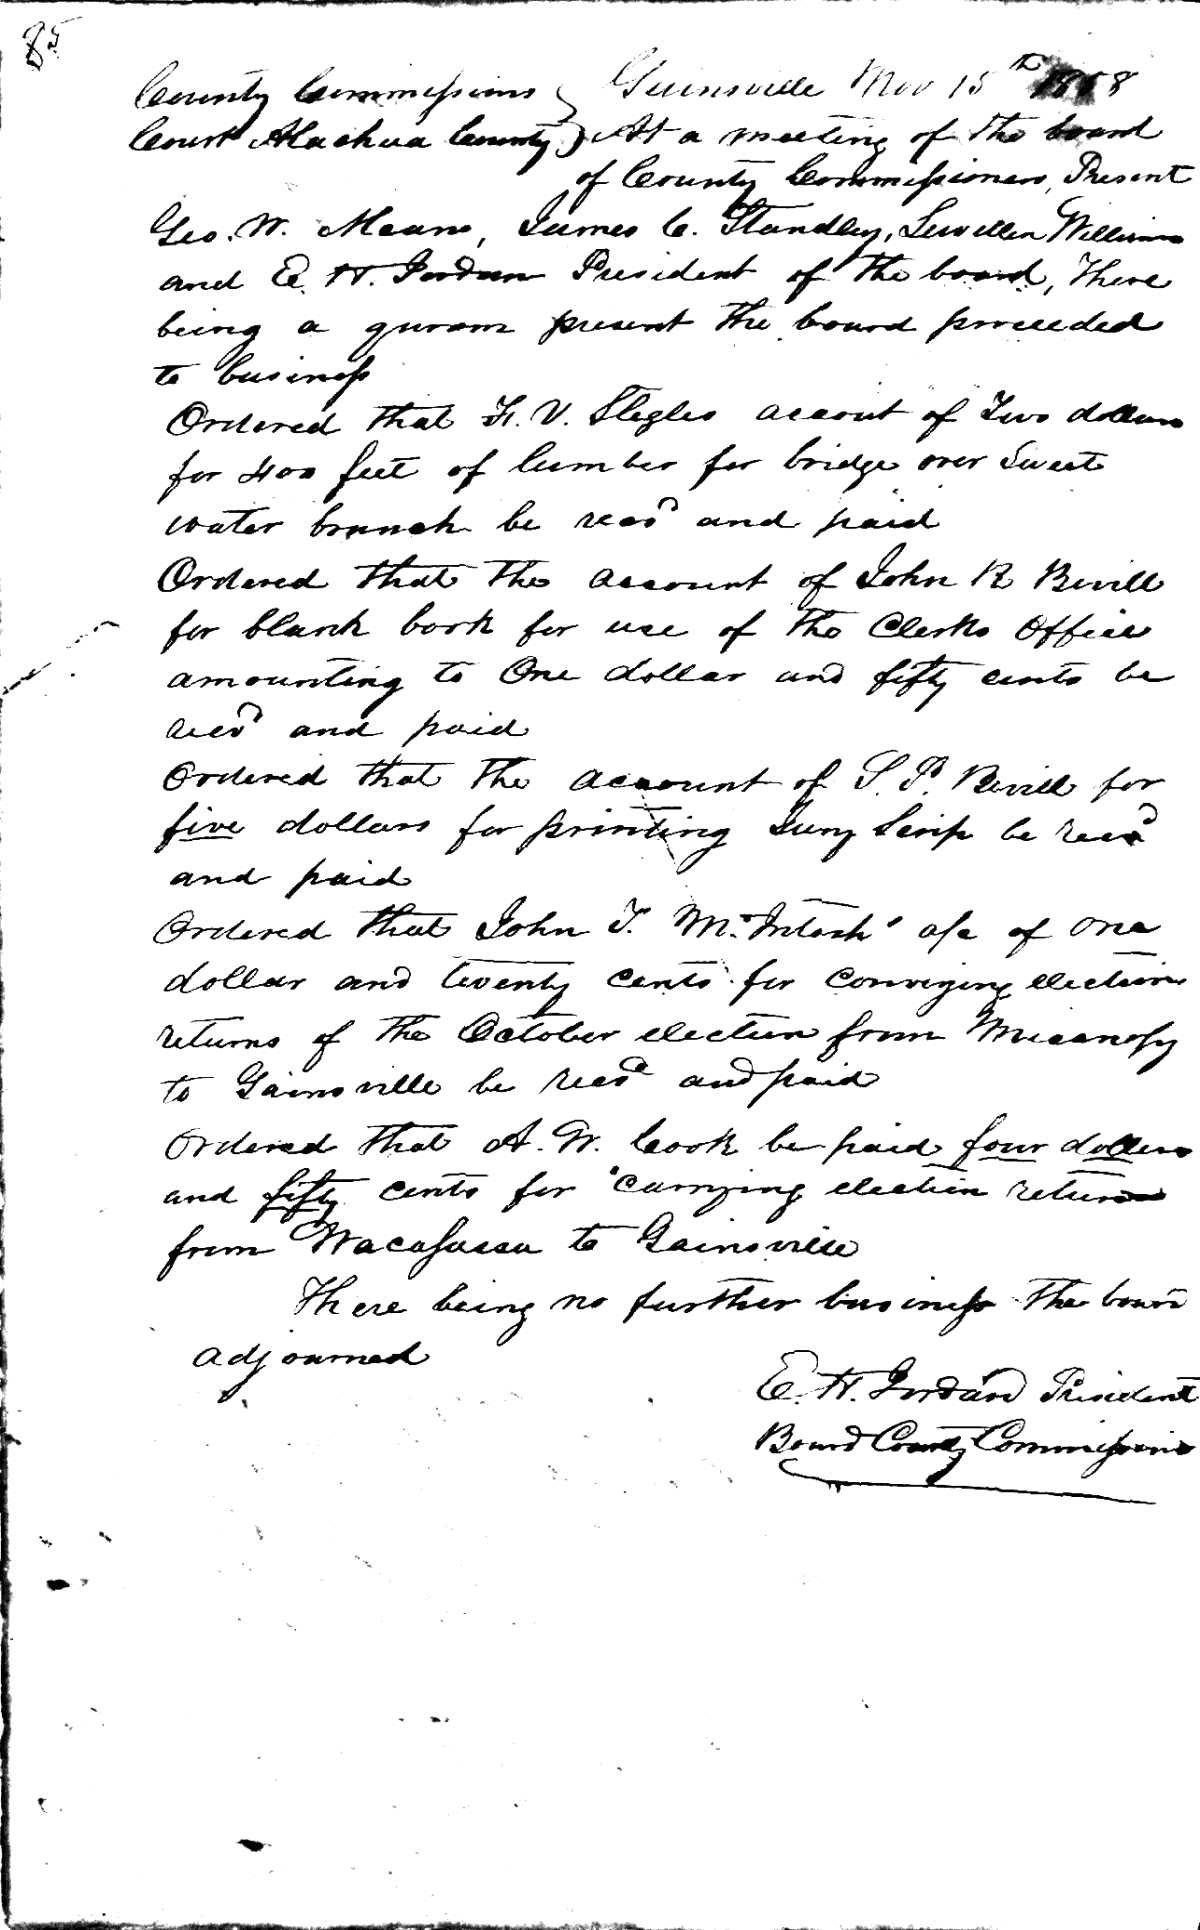 85
County Commissions } Gainsville Nov 15th 1868
Court Alachua County } At a meeting of the board
of County Commissioners, Present
Geo. W. Means, James C. Standley, Lewellen Williams
and E. H. Jordan President of the board, There
being a quram present the board proceeded
to business
Ordered that H. V. accout of Two dollars
for 400 feet of lumber for bridge over Sweet
water branch be recd and paid
Ordered that the account of John R Bevill
for blank book for use of the Clerks Office
amounting to One dollar and fifty cents be
recd and paid
Ordered that the account of S. P. Bevill for
five dollars for printing Jury Scrip be recd
and paid
Ordered that John T. McIntosh' a/c of one
dollar and twenty cents for conveying election
returns of the October election from Micanopy
to Gainsville be recd and paid
Ordered that A. W. Cook be paid four dollars
and fifty cents for carrying election returns
from Wacasassa to Gainsville
There being no further business the board
adjourned
E. H. Jordan President
Board County Commissions